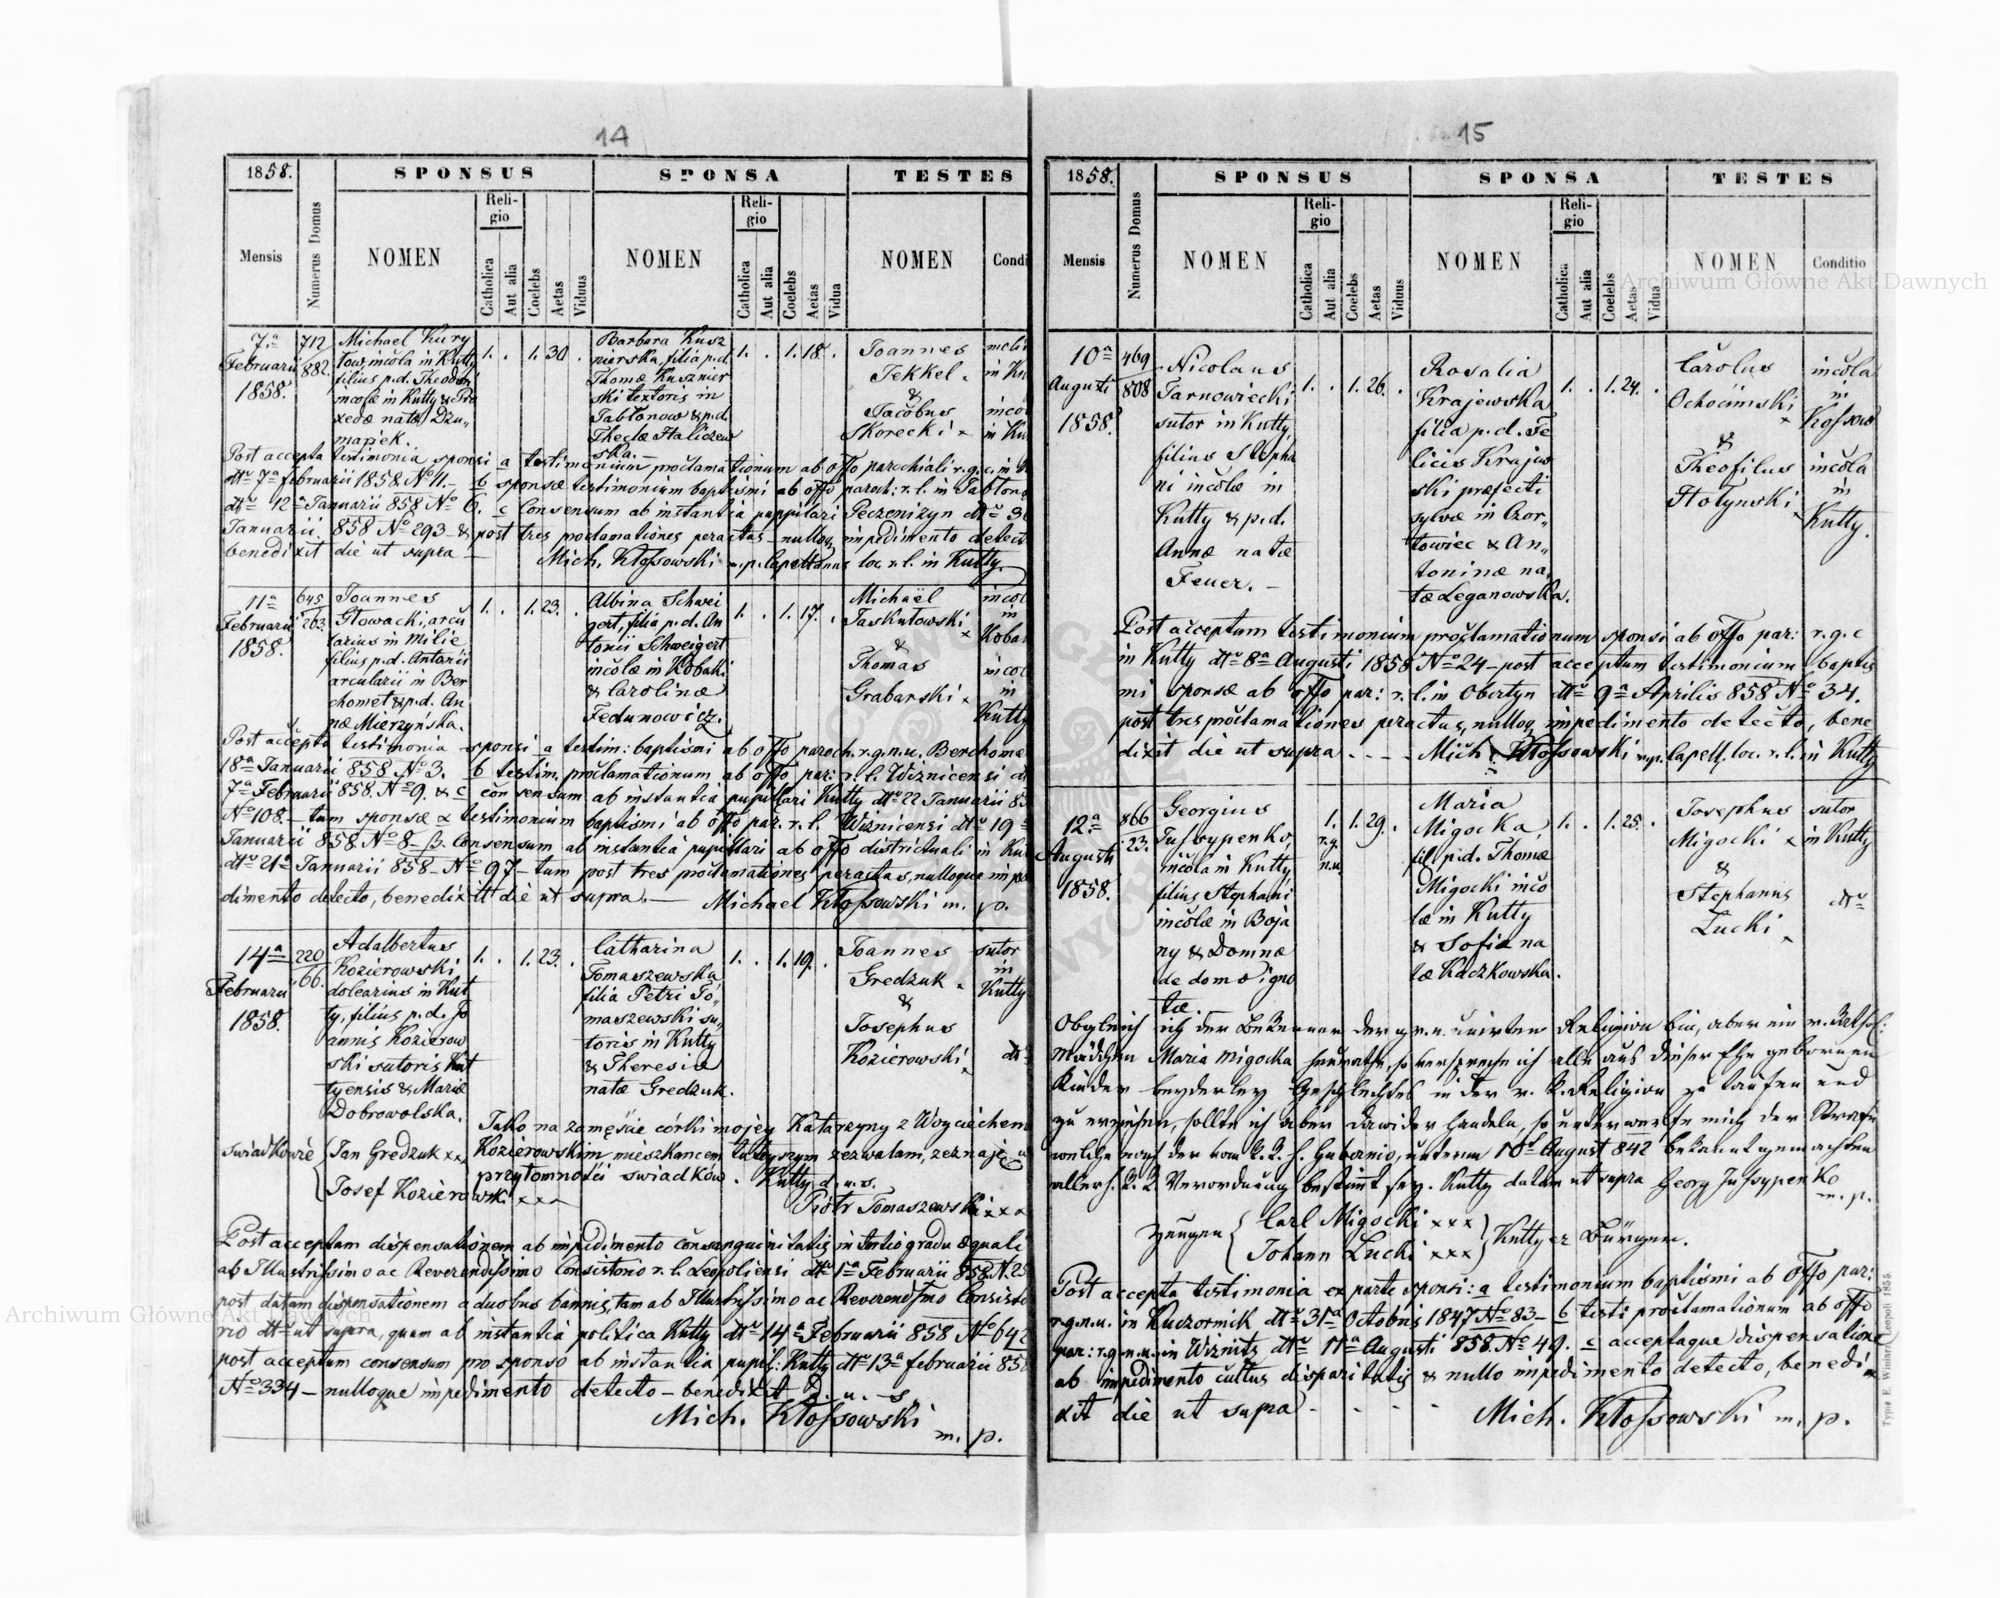 14
1858.
SPONSUS
SPONSA
TESTES
Mensis
Numerus Domus
NOMEN
Religio
Catholica
Aut alia
Coelebs
Aetas
Viduus
NOMEN
Religio
Catholica
Aut alia
Coelebs
Aetas
Vidua
NOMEN
Condi
7ª
Februarii
1858.
712
882.
Michael Kury
tow, incola in Kutty
filius p.d. Theodori
incolæ in Kutty & Pra
xedæ natæ Dzu„
mariek.
1. . 1. 30 .
Barbara Kusz
nierska, filia p.d.
Thomæ Kusznier
ski textoris in
Jabłonow & p.d.
Theclæ Haliczew
ska.
1. . 1. 18. .
Joannes
Jekkel.
&
Jacobus
Skorecki ×
in Ku
inco
in Ku
Post accepta testimonia sponsi a testimonium proclamationum ab offo parochiali r.g.c. in
dtº 7ª februarii 1858 Nº 11. — b sponsæ testimonium baptismi ab offo paroch: r.l. in Jabłono
dtº 12ª Januarii 858 Nº 6. c Consensum ab instantia pupillari Peczenizyn dtº 30
Januarii 858 Nº 293 & post tres proclamationes peractas — nulloq impedimento detect
benedixit die ut supra —
Mich. Kłossowski m.p. Capellanus loc. r.l. in Kutty
11ª
Februarii
1858.
645
263.
Joannes
Głowacki, arcu
larius in Milie
filius p.d. Antonii
arcularii in Ber
chomet & p.d. An
næ Mierzyńska.
1. . 1. 23. .
Albina Schwei
gert, filia p.d. An
tonii Schweigert
incolæ in Kobaki
& Carolinæ
Fedunowicz.
1. . 1. 17. .
Michaël
Jaskułowski
×
&
Thomas
Grabarski ×
incol
in
Kobak
incol
in
Kutty
Post accepta testimonia sponsi a testim: baptismi ab offo paroch. r.g.n.u. Berchome
18ª Januarii 858 Nº 3. b testim. proclamationum ab offo par: r.l. Wiznicensi d
7ª Februarii 858. Nº 9. & c consensum ab instantia pupillari Kutty dtº 22 Januarii 85
Nº 108. — tum sponsæ α testimonium baptismi ab offo par. r.l. Wiznicensi dtº 19
Januarii 858 Nº 8 — β. Consensum ab instantia pupillari ab offo districtuali in Ku
dtº 21ª Januarii 858 — Nº 97 — tum post tres proclamationes peractas, nulloque impe
dimento detecto, benedixit die ut supra. —
Michael Kłossowski m. p.
14ª
Februarii
1858.
220
66.
Adalbertus
Kozierowski,
dolearius in Kut
ty, filius p.d. Jo
annis Kozierow
ski sutoris Kut
tyensis & Mariæ
Dobrowolska.
1. . 1. 23. .
Catharina
Tomaszewska
filia Petri To„
maszewski su„
toris in Kutty
& Theresiæ
natæ Gredzuk.
1. . 1. 19. .
Joannes
Gredzuk ×
&
Josephus
Kozierowski ×
sutor
in
Kutty
dtº
Jako na zamęście córki mojey Katarzyny z Woyciechem
Kozierowskim mieszkancem tuteyszym zezwalam, zeznaję w
przytomności swiadków. Kutty d.u.s.
Piotr Tomaszewski × × ×
swiadkowie
Jan Gredzuk × × ×
Josef Kozierowski × × ×
Post acceptam dispensationem ab impedimento consanguinitatis in tertio gradu æquali
ab Illustrissimo ac Reverendissimo Consistorio r.l. Leopoliensi dtº 1ª Februarii 858 N. 25
post datam dispensationem a duobus bannis, tam ab Illustrissimo ac Reverendissimo Consisto
rio dtº ut supra, quam ab instantia politica Kutty dtº 14ª Februarii 858 Nº 642
post acceptum consensum pro sponso ab instantia pupil: Kutty dtº 13ª februarii 858
Nº 334 — nulloque impedimento detecto — benedixit d. u. s.
Mich. Kłossowski
m. p.
15
1858.
SPONSUS
SPONSA
TESTES
Mensis
Numerus Domus
NOMEN
Religio
Catholica
Aut alia
Coelebs
Aetas
Viduus
NOMEN
Religio
Catholica
Aut alia
Coelebs
Aetas
Vidua
NOMEN
Conditio
10ª
Augusti
1858.
469
808
Nicolaus
Tarnowiecki
sutor in Kutty,
filius Stepha
ni incolæ in
Kutty & p.d.
Annæ natæ
Feuer. —
1. . 1. 26. .
Rosalia
Krajewska
filia p.d. Fe
licis Krajew
ski præfecti
sylvæ in Czor„
towiec & An„
toninæ na„
tæ Leganowska.
1. . 1. 24. .
Carolus
Ochocimski
×
&
Theofilus
Hołynski
×
incola
in
Kossow
incola
in
Kutty.
Post acceptum testimonium proclamationum sponsi ab offo par: r.g.c
in Kutty dtº 8ª Augusti 1858 Nº 24 — post acceptum testimonium baptis
mi sponsæ ab offo par: r.l. in Obertyn dtº 9ª Aprilis 858 Nº 34.
post tres proclamationes peractas, nulloq impedimento detecto, bene
dixit die ut supra - - - - Mich. Kłossowski m.p. Capell. loc. r.l. in Kutty
12ª
Augusti
1858.
866
23.
Georgius
Jussypenko,
incola in Kutty
filius Stephani
incolæ in Boja
ny & Domnæ
de domo igno
tæ.
1.
r.g.
n.u.
1. 29. .
Maria
Migocka,
fil. p.d. Thomæ
Migocki inco
læ in Kutty
& Sofiæ na
tæ Kaczkowska.
1. . 1. 25. .
Josephus
Migocki ×
&
Stephanus
Łucki
×
sutor
in Kutty
dtº
Obgleich ich der Bekenner der g.n. unirten Religion bin, aber ein r. kathol:
Mädchen Maria Migocka heurathe, so verspreche ich alle aus dieser Ehe gebornen
Kinder beyderley Geschlechtes in der r. k. Religion zu taufen und
zu erziehen, sollte ich aber dawider handeln, so unterwerfe mich der Strafe
welche nach der vom k.k. h. Gubernio, unterm 10ª August 842 bekannt gemachten
allerh. k.k. Verordnung bestimmt sey. Kutty datum ut supra Georg Jussypenko
m. p.
Zeugen
Carl Migocki × × ×
Johann Łucki × × ×
Kuttyer Bürger.
Post accepta testimonia ex parte sponsi: a testimonium baptismi ab offo par:
r.g.n.u. in Kuczormik dtº 31ª Octobris 1847 Nº 83 — b testi: proclamationum ab offo
par: r.g.n.u. in Wiznitz dtº 11ª Augusti 858 Nº 49. c acceptaque dispensatione
ab impedimento cultus disparitatis & nullo impedimento detecto, benedi
xit die ut supra - - - - Mich. Kłossowski m. p.
Typis E. Winiarz Leopoli 1855.
Archiwum Główne Akt Dawnych
Archiwum Główne Akt Dawnych